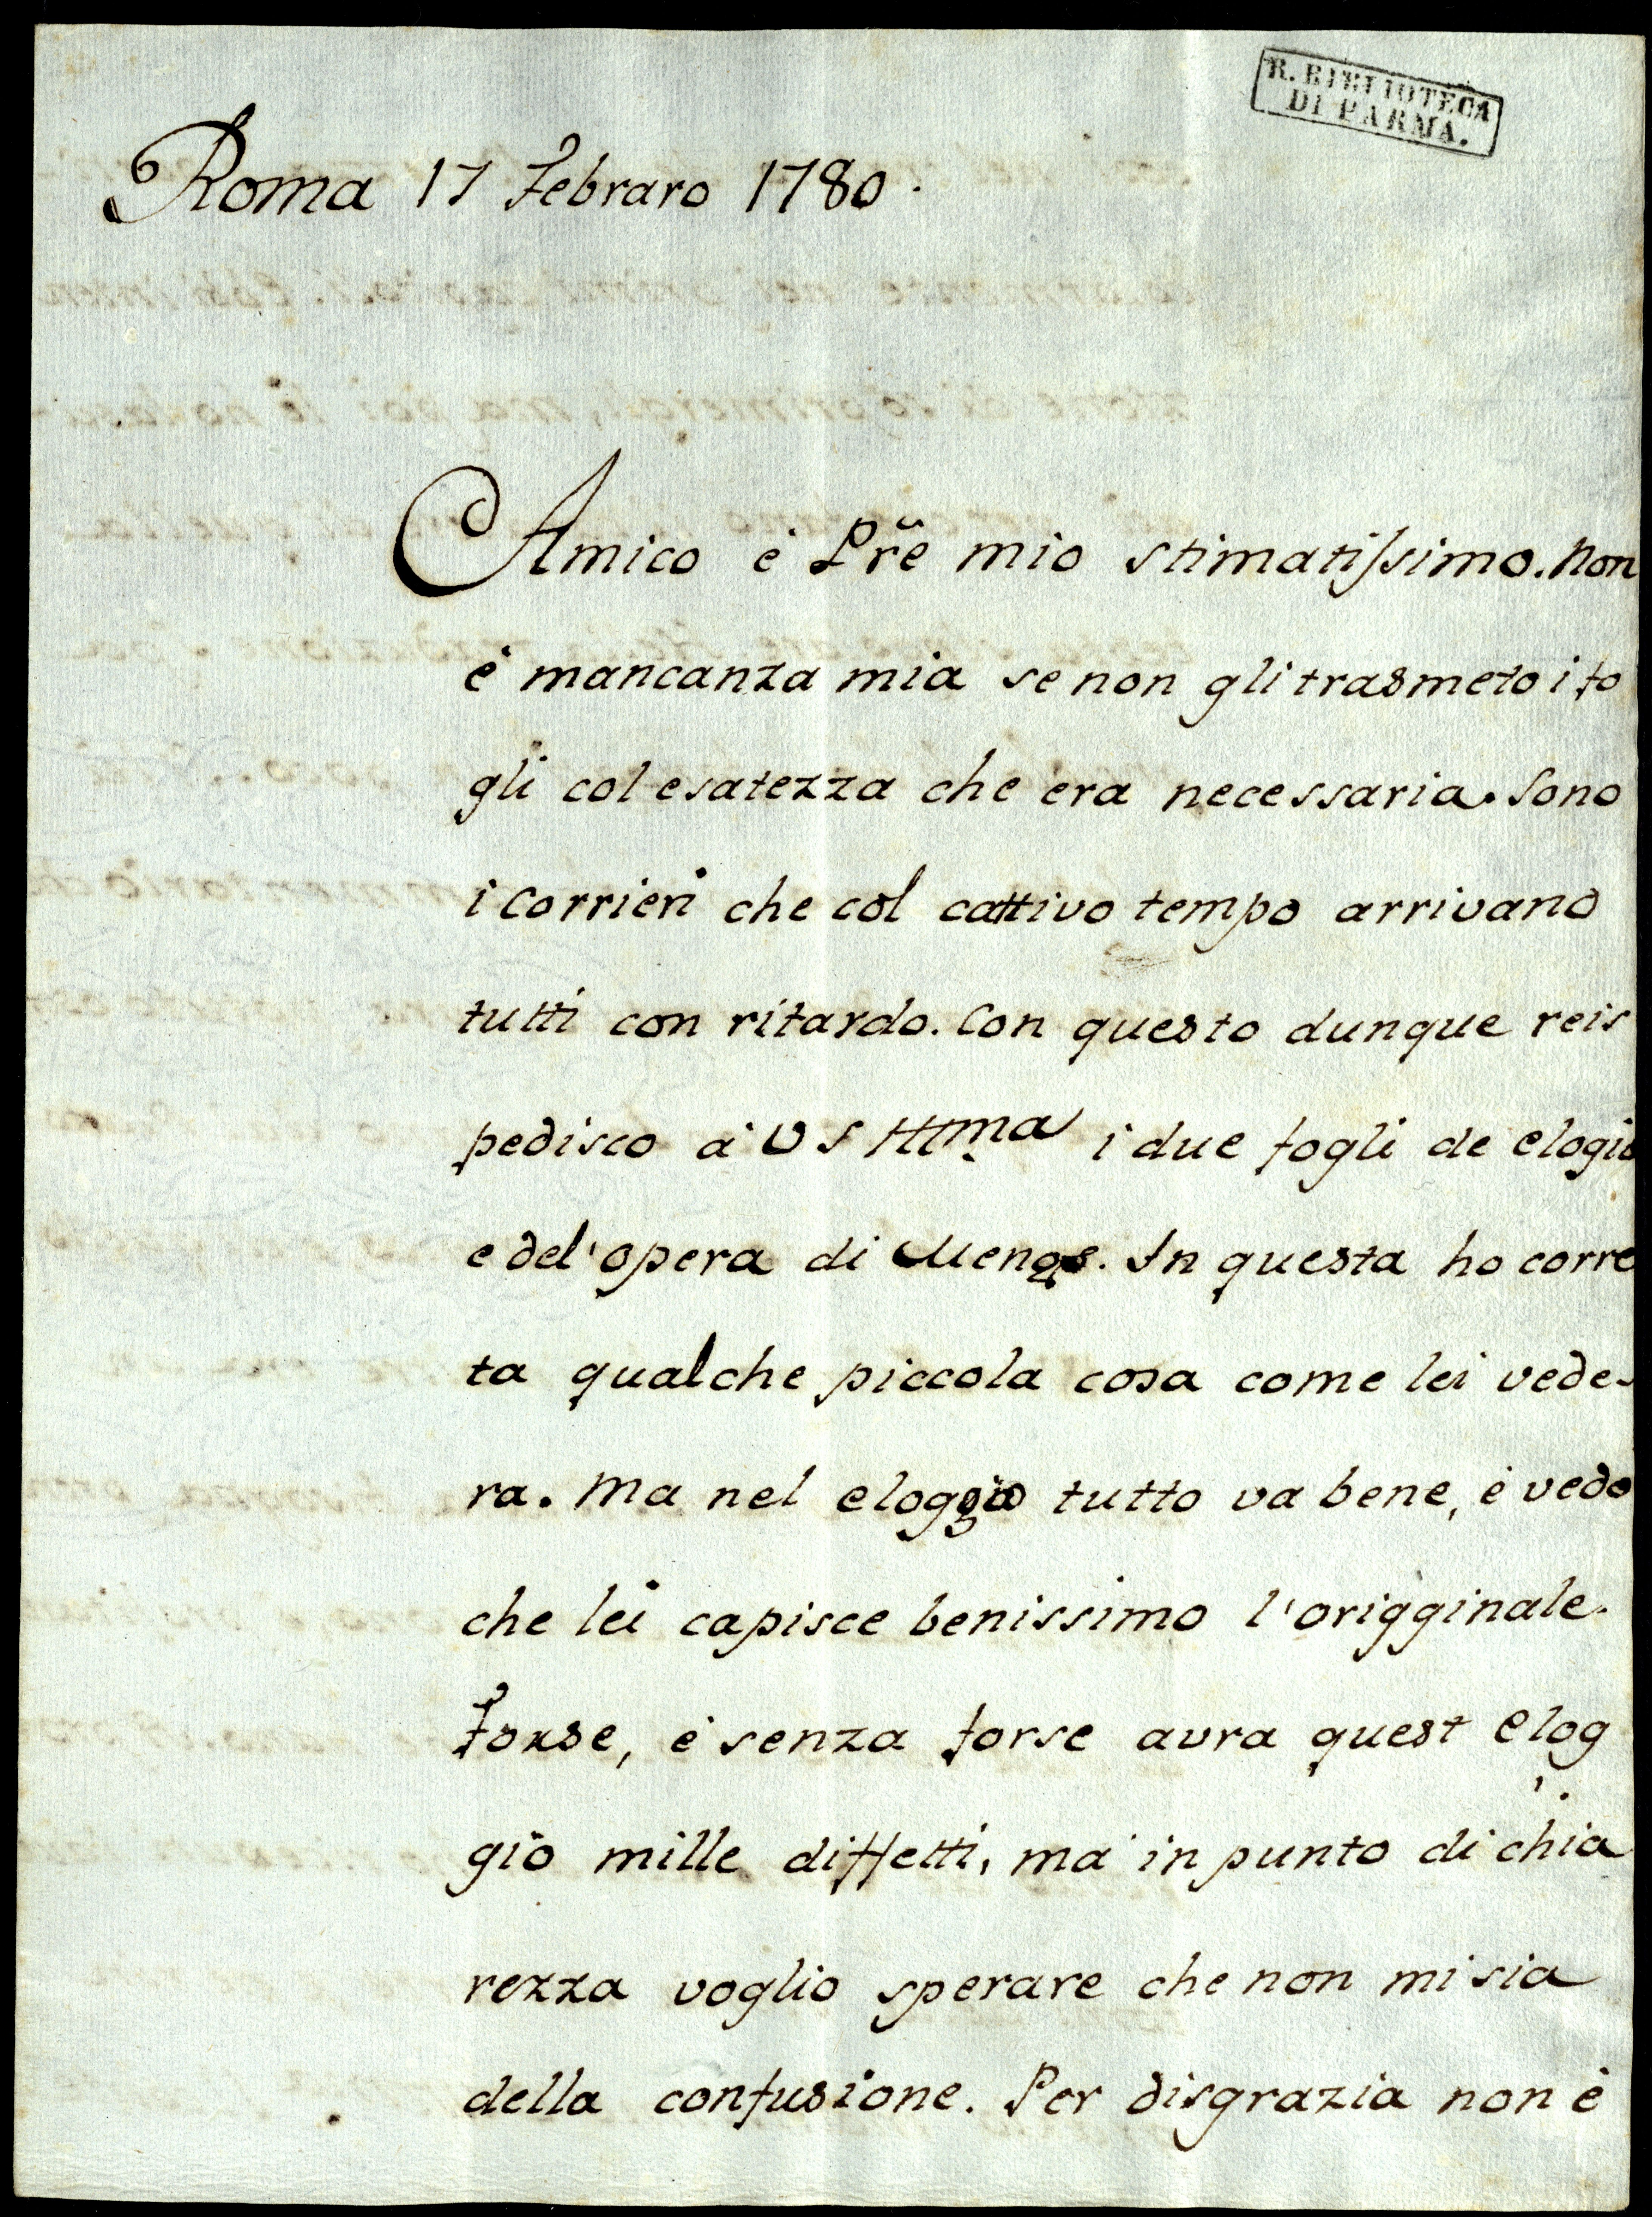 R. BIBLIOTECA
DI PARMA.
Roma 17 Febraro 1780.
Amico è Pře mio stimatissimo. Non
è mancanza mia se non gli trasmeto i fo
gli col esatezza che era necessaria. Sono
i Corrieri che col cattivo tempo arrivano
tutti con ritardo. Con questo dunque reis
pedisco à VS Illma i due fogli de elogio
e del'opera di Mengs. In questa ho corre
ta qualche piccola cosa come lei vede-
ra. Ma nel eloggio tutto va bene, è vedo
che lei capisce benissimo l'origginale.
Forse, è senza forse avra quest elog
gio mille diffetti, ma in punto di chia
rezza voglio sperare che non mi sia
della confusione. Per disgrazia non è